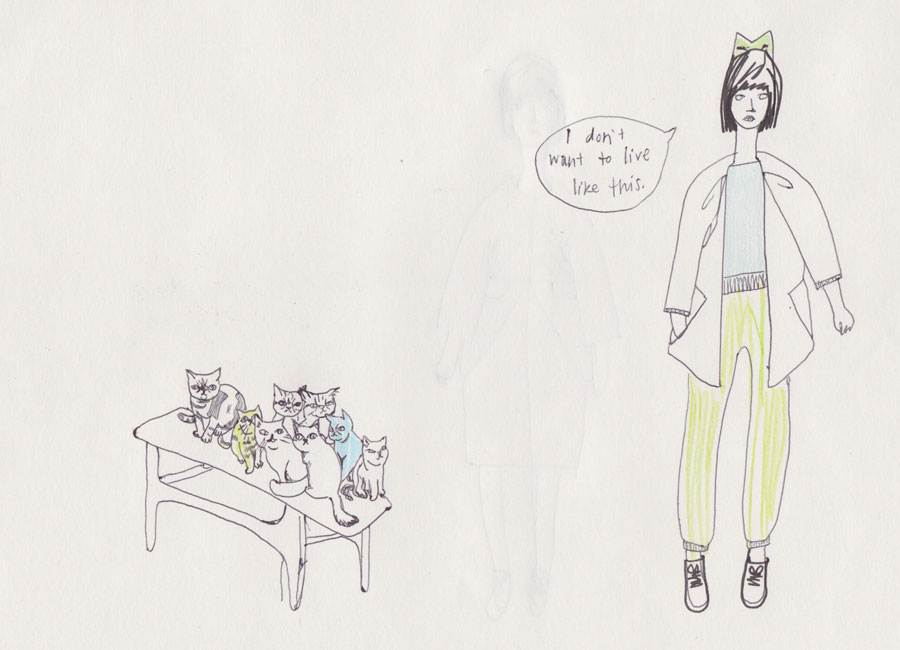 I don't
want to live
like this.